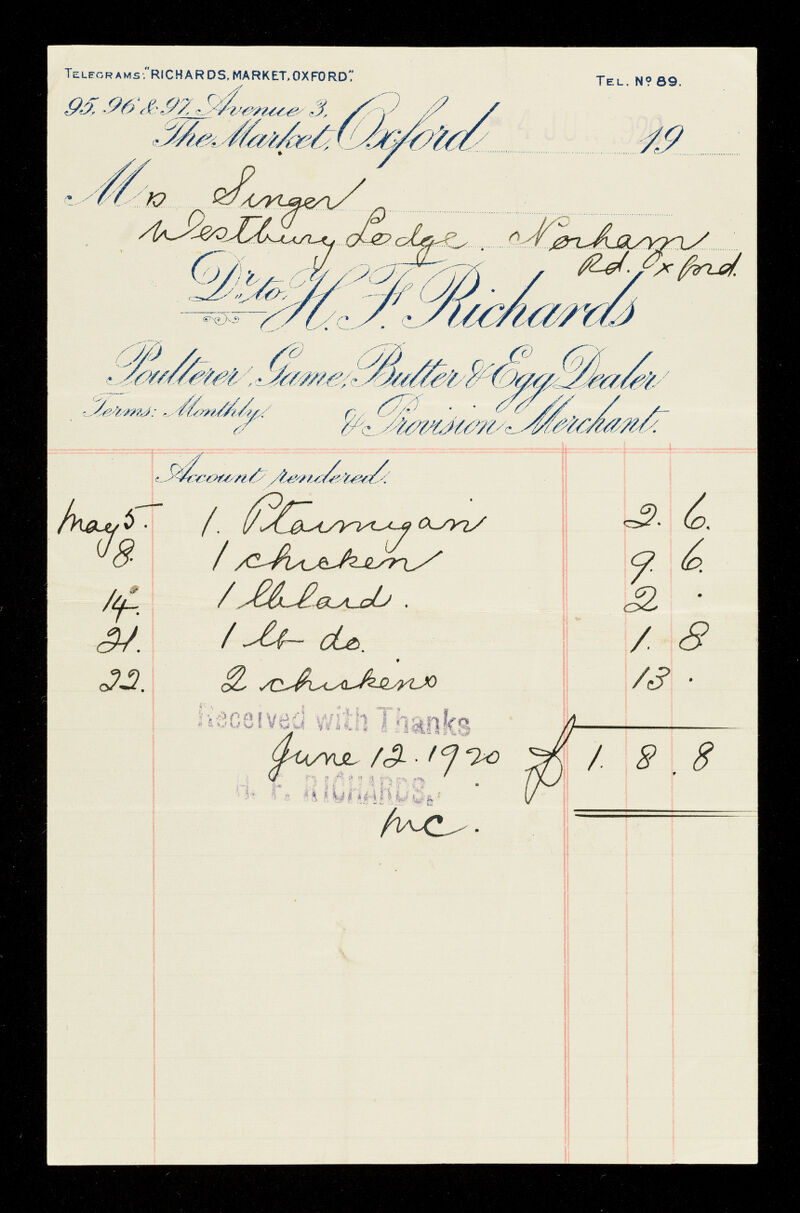 TELEGRAMS: "RICHARDS, MARKET, OXFORD".
TEL. No 89.
95, 96 & 97, Avenue 3,
The Market, Oxford 4 JUN 1920 19
Mrs Singer
Westbury Lodge. Norham
Rd. Oxford.
Dr. to H. F. Richards
Poulterer, Game, Butter & Egg Dealer
Terms: Monthly. & Provision Merchant.
Account rendered.
May 5. 1. Ptarmigan 2. 6.
8. 1 chicken 9. 6.
14. 1 lb lard. 2 .
21. 1 lb do. 1. 8
22. 2 chickens 13 .
Received with Thanks
June 12. 1920 £ 1. 8. 8
H. F. RICHARDS.
MC.